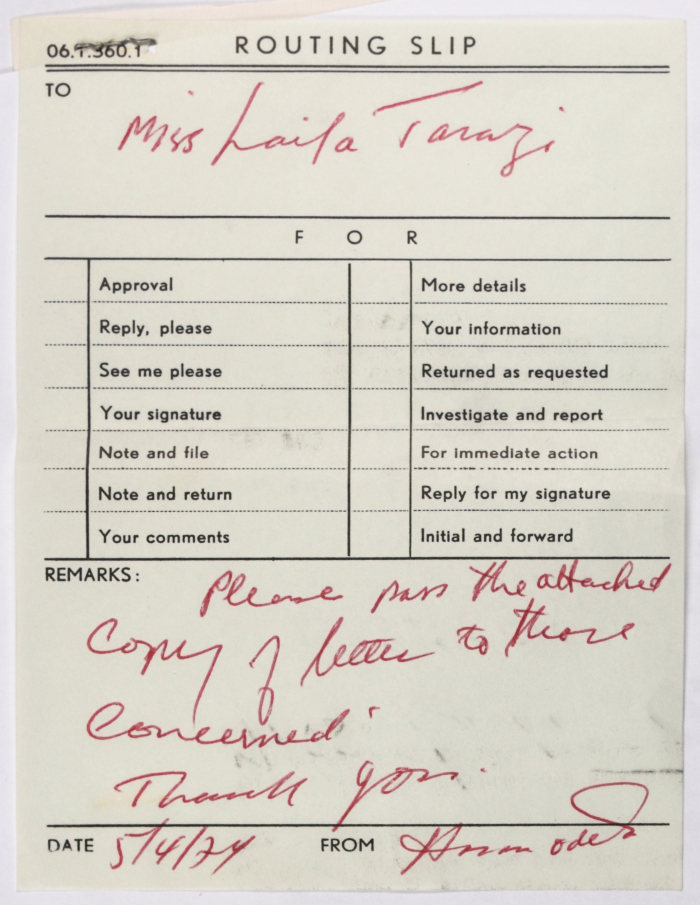 06.T.360.1
ROUTING SLIP
TO
Miss Laila Tarazi
FOR
Approval
Reply, please
See me please
Your signature
Note and file
Note and return
Your comments
More details
Your information
Returned as requested
Investigate and report
For immediate action
Reply for my signature
Initial and forward
REMARKS:
Please pass the attached
Copy of letter to those
Concerned
Thank you.
DATE 5/4/74 FROM